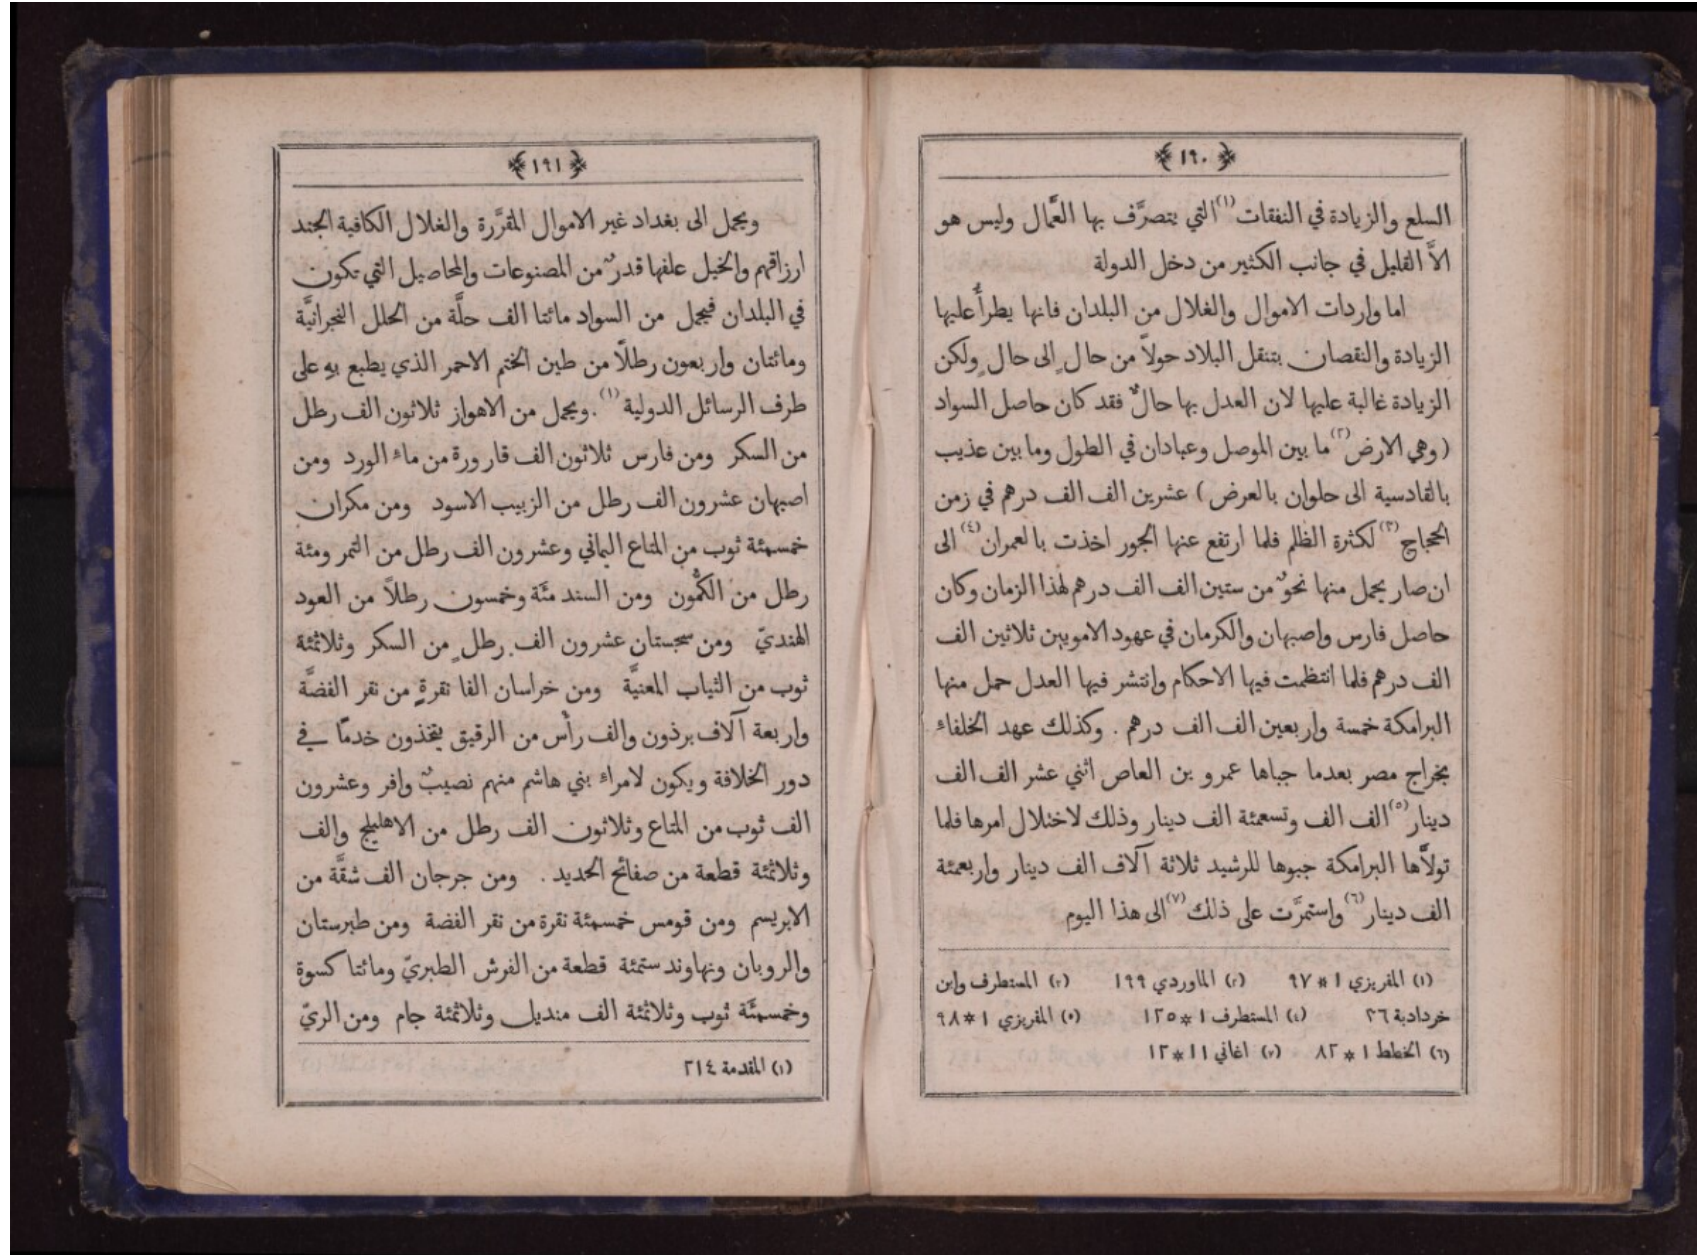 ﴿ ١٩٠ ﴾
السلع والزيادة في النفقات (١) التي يتصرَّف بها العمَّال وليس هو
الاَّ القليل في جانب الكثير من دخل الدولة
اما واردات الاموال والغلال من البلدان فانها يطرأُ عليها
الزيادة والنقصان بتنقل البلاد حولاً من حالٍ الى حالٍ ولكن
الزيادة غالبة عليها لان العدل بها حالٌّ فقد كان حاصل السواد
(وهي الارض (٢) ما بين الموصل وعبادان في الطول وما بين عذيب
بالقادسية الى حلوان بالعرض) عشرين الف الف درهم في زمن
الحجاج (٣) لكثرة الظلم فلما ارتفع عنها الجور اخذت بالعمران (٤) الى
ان صار يحمل منها نحوٌ من ستين الف الف درهم لهذا الزمان وكان
حاصل فارس واصبهان والكرمان في عهود الامويين ثلاثين الف
الف درهم فلما انتظمت فيها الاحكام وانتشر فيها العدل حمل منها
البرامكة خمسة واربعين الف الف درهم . وكذلك عهد الخلفاء
بخراج مصر بعدما جباها عمرو بن العاص اثني عشر الف الف
دينار (٥) الف الف وتسعمئة الف دينار وذلك لاختلال امرها فلما
تولاَّها البرامكة جبوها للرشيد ثلاثة آلاف الف دينار واربعمئة
الف دينار (٦) واستمرَّت على ذلك (٧) الى هذا اليوم
(١) المقريزي ١ * ٩٧ (٢) الماوردي ١٩٩ (٣) المستطرف وابن
خردادبة ٣٦ (٤) المستطرف ١ * ١٢٥ (٥) المقريزي ١ * ٩٨
(٦) الخطط ١ * ٨٢ (٧) اغاني ١١ * ١٢
﴿ ١٩١ ﴾
ويحمل الى بغداد غير الاموال المقرَّرة والغلال الكافية الجند
ارزاقهم والخيل علفها قدرٌ من المصنوعات والمحاصيل التي تكون
في البلدان فيحمل من السواد مائتا الف حلَّة من الحلل النجرانيَّة
ومائتان واربعون رطلًا من طين الختم الاحمر الذي يطبع بهِ على
طرف الرسائل الدولية (١) . ويحمل من الاهواز ثلاثون الف رطل
من السكر ومن فارس ثلاثون الف قارورة من ماء الورد ومن
اصبهان عشرون الف رطل من الزبيب الاسود ومن مكران
خمسمئة ثوب من المتاع اليماني وعشرون الف رطل من التمر ومئة
رطل من الكمُّون ومن السند مئة وخمسون رطلاً من العود
الهنديّ ومن سجستان عشرون الف رطلٍ من السكر وثلاثمئة
ثوب من الثياب المعنيَّة ومن خراسان الفا نقرةٍ من نقر الفضَّة
واربعة آلاف برذون والف رأس من الرقيق يتخذون خدمًا في
دور الخلافة ويكون لامراء بني هاشم منهم نصيبٌ وافر وعشرون
الف ثوب من المتاع وثلاثون الف رطل من الاهليلج والف
وثلاثمئة قطعة من صفائح الحديد . ومن جرجان الف شقَّة من
الابريسم ومن قومس خمسمئة نقرة من نقر الفضة ومن طبرستان
والرويان ونهاوند ستمئة قطعة من الفرش الطبريّ ومائتا كسوة
وخمسمئة ثوب وثلاثمئة الف منديل وثلاثمئة جام ومن الريّ
(١) المقدمة ٢١٤